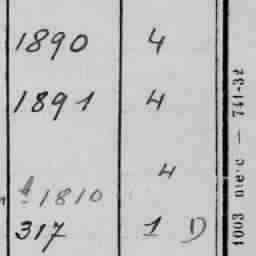 1890 4
1891 4
4
1810
317 1 D
1003 — 741-32